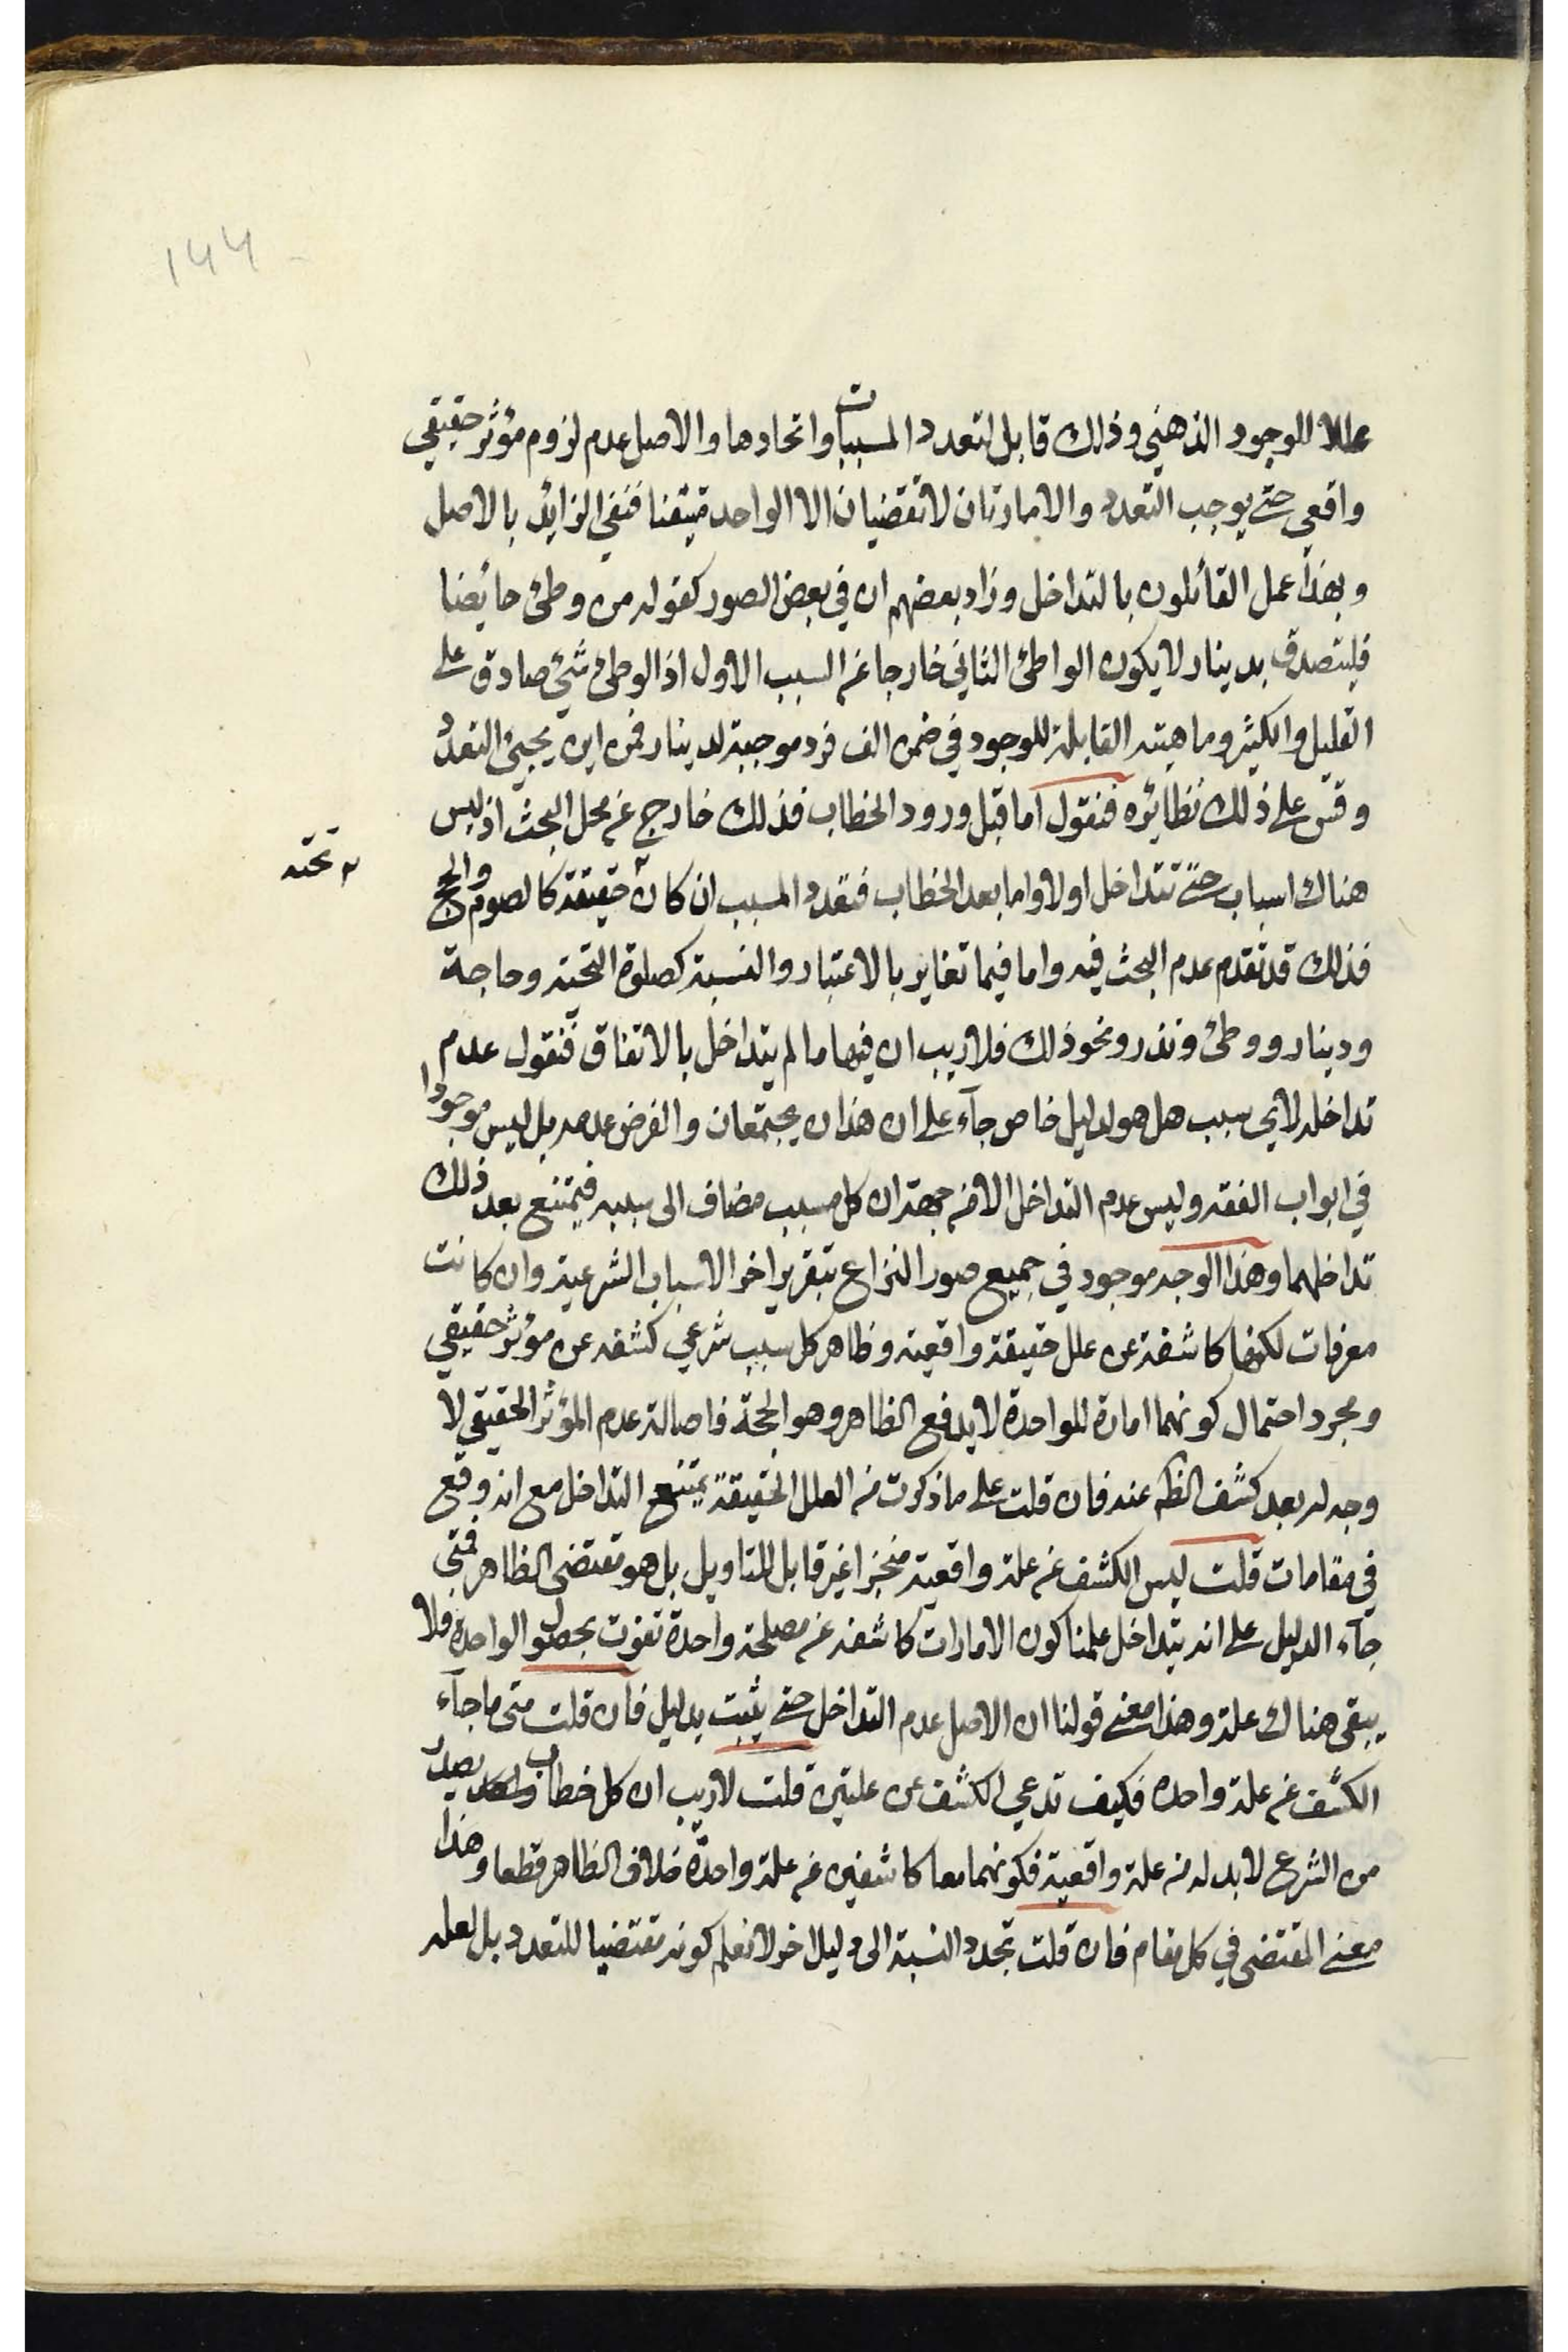 ١٤٤
عللا للوجود الذهني وذلك قابل لتعدد المسببات واتحادها والاصل عدم لزوم مؤثر حقيقي
واقعي حتى يوجب التعدد والامارتان لا تقتضيان الا الواحد متيقنا فنفي الزايد بالاصل
وبهذا عمل القائلون بالتداخل وزاد بعضهم ان في بعض الصور كقوله من وطئ حائضا
فليتصدق بدينار لا يكون الواطئ الثاني خارجا عن السبب الاول اذ الوطئ شئ صادق على
القليل والكثير وماهيته القابلة للوجود في ضمن الف فرد موجبة لدينار فمن اين يجيئ التعدد
وقس على ذلك نظائره فنقول اما قبل ورود الخطاب فذلك خارج عن محل البحث اذ ليس
هناك اسباب حتى تتداخل اولا واما بعد الخطاب فتعدد المسبب ان كان حقيقة كالصوم والحج
تحته
فذلك قد تقدم عدم البحث فيه واما فيما تغاير بالاعتبار والنسبة كصلوة التحية وحاجة
ودينار ووطئ ونذر ونحو ذلك فلا ريب ان فيها ما لم يتداخل بالاتفاق فنقول عدم
تداخله لاي سبب هل هو لدليل خاص جآء على ان هذان يجتمعان والفرض عدمه بل ليس موجودا
في ابواب الفقه وليس عدم التداخل الا من جهة ان كل مسبب مضاف الى سببه فيمتنع بعد ذلك
تداخلهما وهذا الوجه موجود في جميع صور النزاع بتقرير اخر الاسباب الشرعية وان كانت
معرفات لكنها كاشفة عن علل حقيقة واقعية وظاهر كل سبب شرعي كشفه عن مؤثر حقيقي
ومجرد احتمال كونهما امارة للواحدة لا يدفع الظاهر وهو الحجة فاصالة عدم المؤثر الحقيقي لا
وجه له بعد كشف الظه عنه فان قلت على ما ذكرت من العلل الحقيقة يمتنع التداخل مع انه وقع
في مقامات قلت ليس الكشف عن علة واقعية منجزا غير قابل للتاويل بل هو مقتضى الظاهر فمتى
جآء الدليل على انه يتداخل علمنا كون الامارات كاشفه عن مصلحة واحدة تفوت بحصول الواحدة فلا
يبقى هناك علة وهذا معنى قولنا ان الاصل عدم التداخل حتى يثبت بدليل فان قلت متى ما جآء
الكشف عن علة واحده فكيف تدعي الكشف عن علتين قلت لا ريب ان كل خطاب يصدر
من الشرع لا بد له من علة واقعية فكونهما معا كاشفين عن علة واحدة خلاف الظاهر قطعا وهذا
معنى المقتضى في كل مقام فان قلت تجدد النسبة الى دليل اخر لا نعلم كونه مقتضيا للتعدد بل لعله